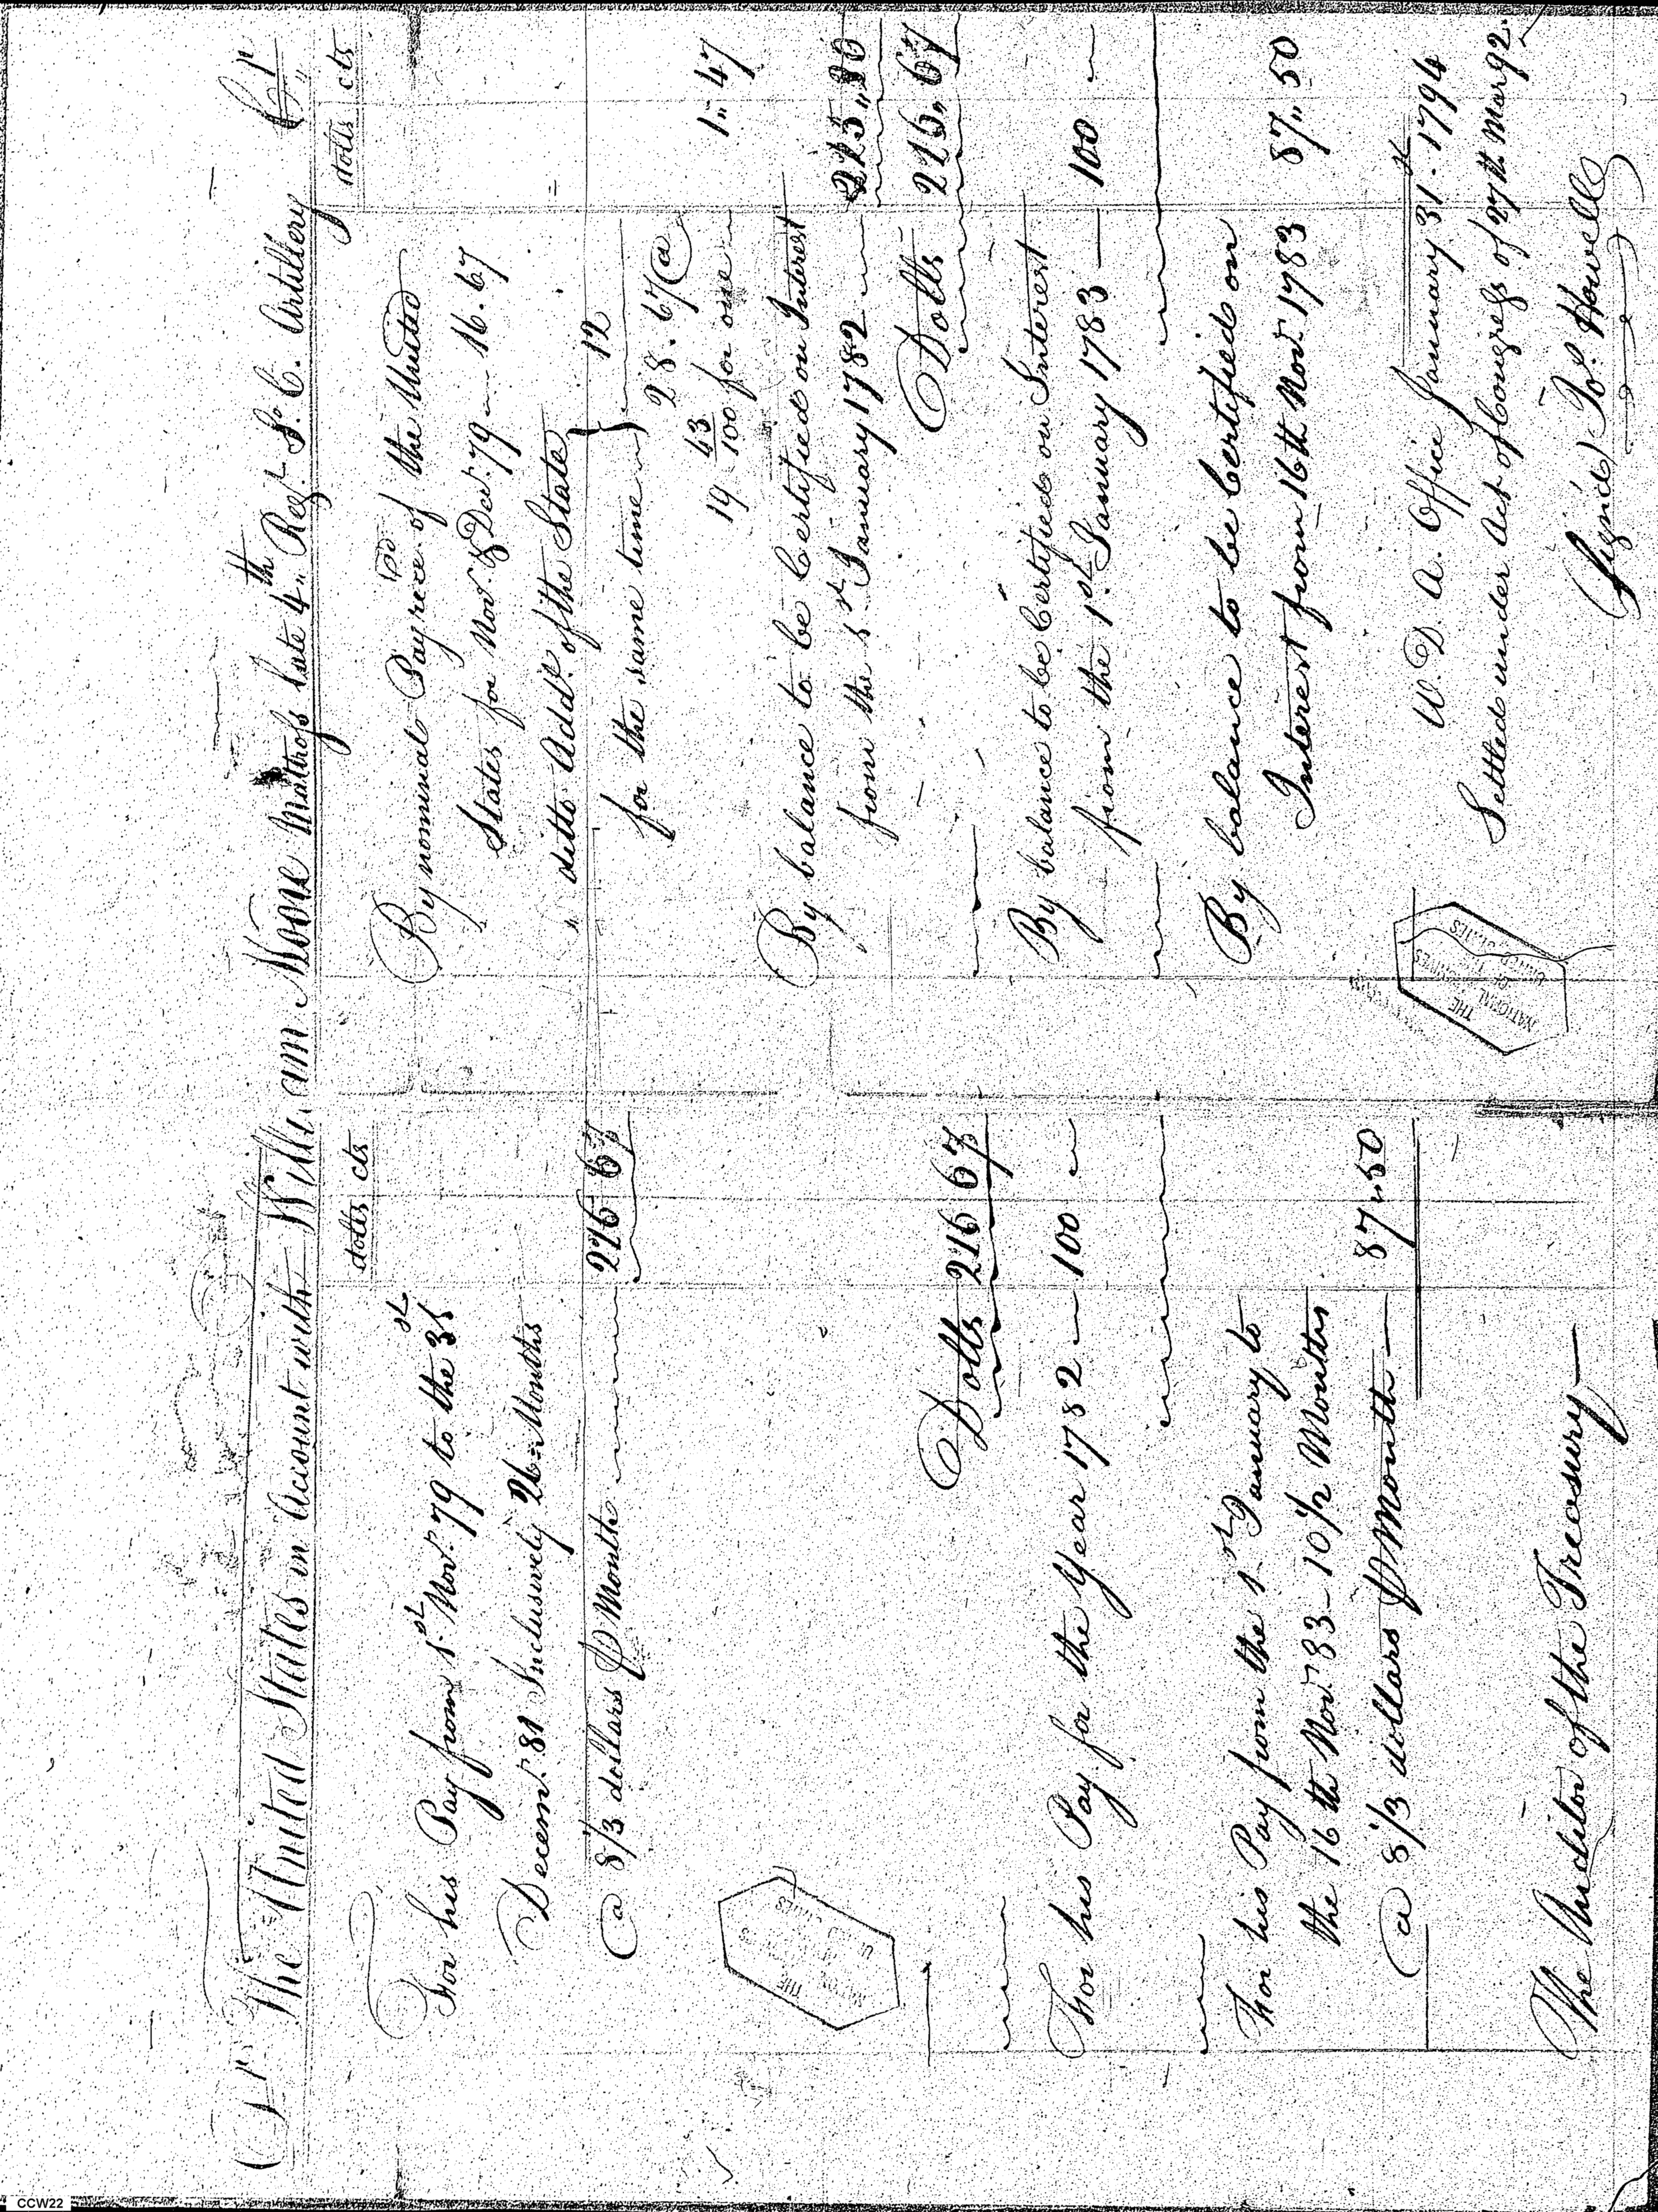 Dr. The United States in Account with William Moore Mattross late 4th Regt. So. C. Artillery Cr.
dolls cts
For his Pay from 1st Novr. 79 to the 31st
Decemr. 81 Inclusively 26 = Months
@ 8 1/3 dollars ⅌ Month 216 67
Dolls 216 67
For his Pay for the Year 1782 — 100 —
For his Pay from the 1st January to
the 16th Novr. 83 – 10 1/2 Months
@ 8 1/3 dollars ⅌ Month — 87 „ 50
The Auditor of the Treasury —
dolls cts
By nominal Pay rece'd of the United
States for Novr. & Decr. 79 — 16 . 67
ditto Addl. of the State
for the same time } 12
28 . 67 @
19 43/100 for one — 1 „ 47
By balance to be Certified on Interest
from the 1st January 1782 —
Dolls 216 „ 67
By balance to be Certified on Interest
from the 1st January 1783 — 100 —
By balance to be Certified on
Interest from 16th Novr. 1783 87 „ 50
W. D. A. Office January 31st 1794
Settled under Act of Congress of 27th Mar 92.
(Signed) Jos. Howell
THE NATIONAL ARCHIVES OF THE UNITED STATES
THE NATIONAL ARCHIVES OF THE UNITED STATES
CCW22